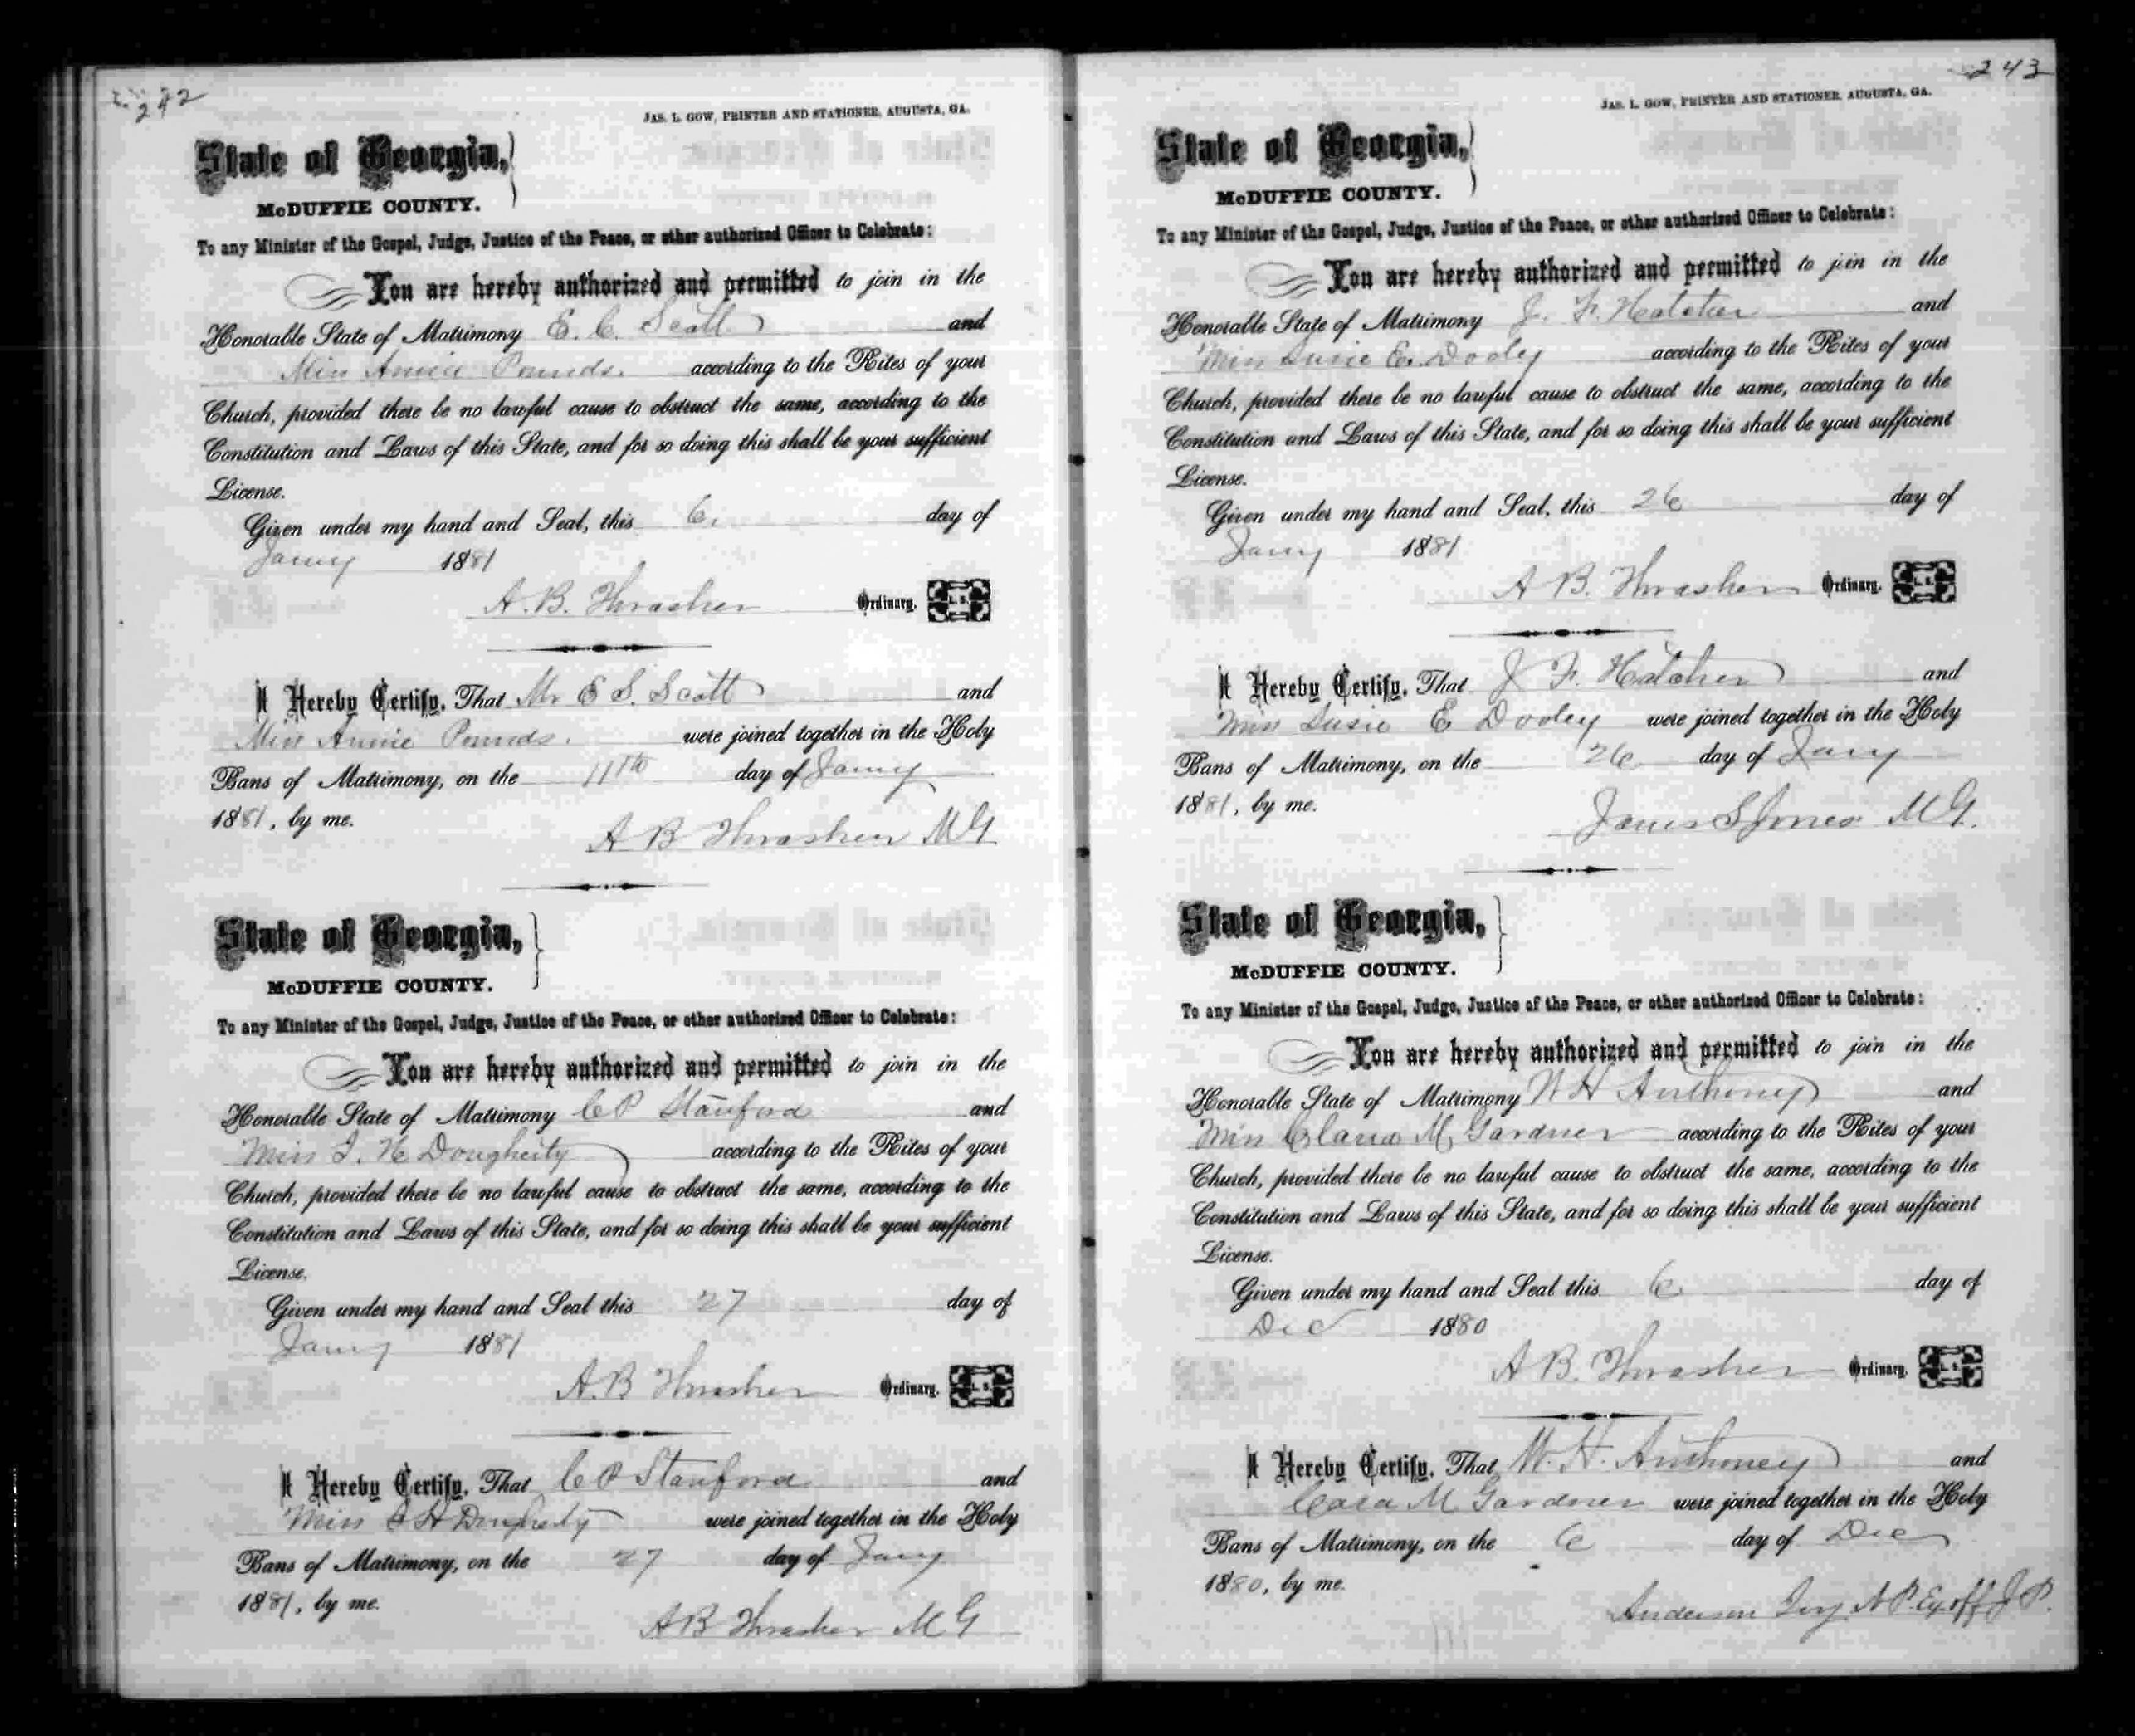 242
JAS. L. GOW, PRINTER AND STATIONER, AUGUSTA, GA.
State of Georgia,
McDUFFIE COUNTY.
To any Minister of the Gospel, Judge, Justice of the Peace, or other authorized Officer to Celebrate:
You are hereby authorized and permitted to join in the
Honorable State of Matrimony E. C. Scott and
Miss Annie Pounds. according to the Rites of your
Church, provided there be no lawful cause to obstruct the same, according to the
Constitution and Laws of this State, and for so doing this shall be your sufficient
License.
Given under my hand and Seal, this 6. day of
Jany 1881
A. B. Thrasher Ordinary. L. S.
I Hereby Certify, That Mr E S. Scott and
Miss Annie Pounds. were joined together in the Holy
Bans of Matrimony, on the 11th day of Jany
1881, by me.
A B Thrasher M G
State of Georgia,
McDUFFIE COUNTY.
To any Minister of the Gospel, Judge, Justice of the Peace, or other authorized Officer to Celebrate:
You are hereby authorized and permitted to join in the
Honorable State of Matrimony C P Stanford and
Miss I. H Dougherty according to the Rites of your
Church, provided there be no lawful cause to obstruct the same, according to the
Constitution and Laws of this State, and for so doing this shall be your sufficient
License.
Given under my hand and Seal this 27 day of
Jany 1881
A. B Thrasher Ordinary. L. S.
I Hereby Certify, That C P Stanford and
Miss H Dougherty were joined together in the Holy
Bans of Matrimony, on the 27 day of Jany
1881, by me.
A B Thrasher M G
243
JAS. L. GOW, PRINTER AND STATIONER, AUGUSTA, GA.
State of Georgia,
McDUFFIE COUNTY.
To any Minister of the Gospel, Judge, Justice of the Peace, or other authorized Officer to Celebrate:
You are hereby authorized and permitted to join in the
Honorable State of Matrimony J. F. Hatcher and
Miss Susie E. Dooly according to the Rites of your
Church, provided there be no lawful cause to obstruct the same, according to the
Constitution and Laws of this State, and for so doing this shall be your sufficient
License.
Given under my hand and Seal, this 26 day of
Jany 1881
A B. Thrasher Ordinary. L. S.
I Hereby Certify, That J F. Hatcher and
Miss Susie E Dooley were joined together in the Holy
Bans of Matrimony, on the 26 day of Jany
1881, by me.
James S Jones M G.
State of Georgia,
McDUFFIE COUNTY.
To any Minister of the Gospel, Judge, Justice of the Peace, or other authorized Officer to Celebrate:
You are hereby authorized and permitted to join in the
Honorable State of Matrimony W H Anthony and
Miss Clara M. Gardner according to the Rites of your
Church, provided there be no lawful cause to obstruct the same, according to the
Constitution and Laws of this State, and for so doing this shall be your sufficient
License.
Given under my hand and Seal this 6 day of
Dec 1880
A B. Thrasher Ordinary. L. S.
I Hereby Certify, That W. H. Anthoney and
Cara M Gardner were joined together in the Holy
Bans of Matrimony, on the 6 day of Dec
1880, by me.
Anderson Ivy N. P. Ex off J P.